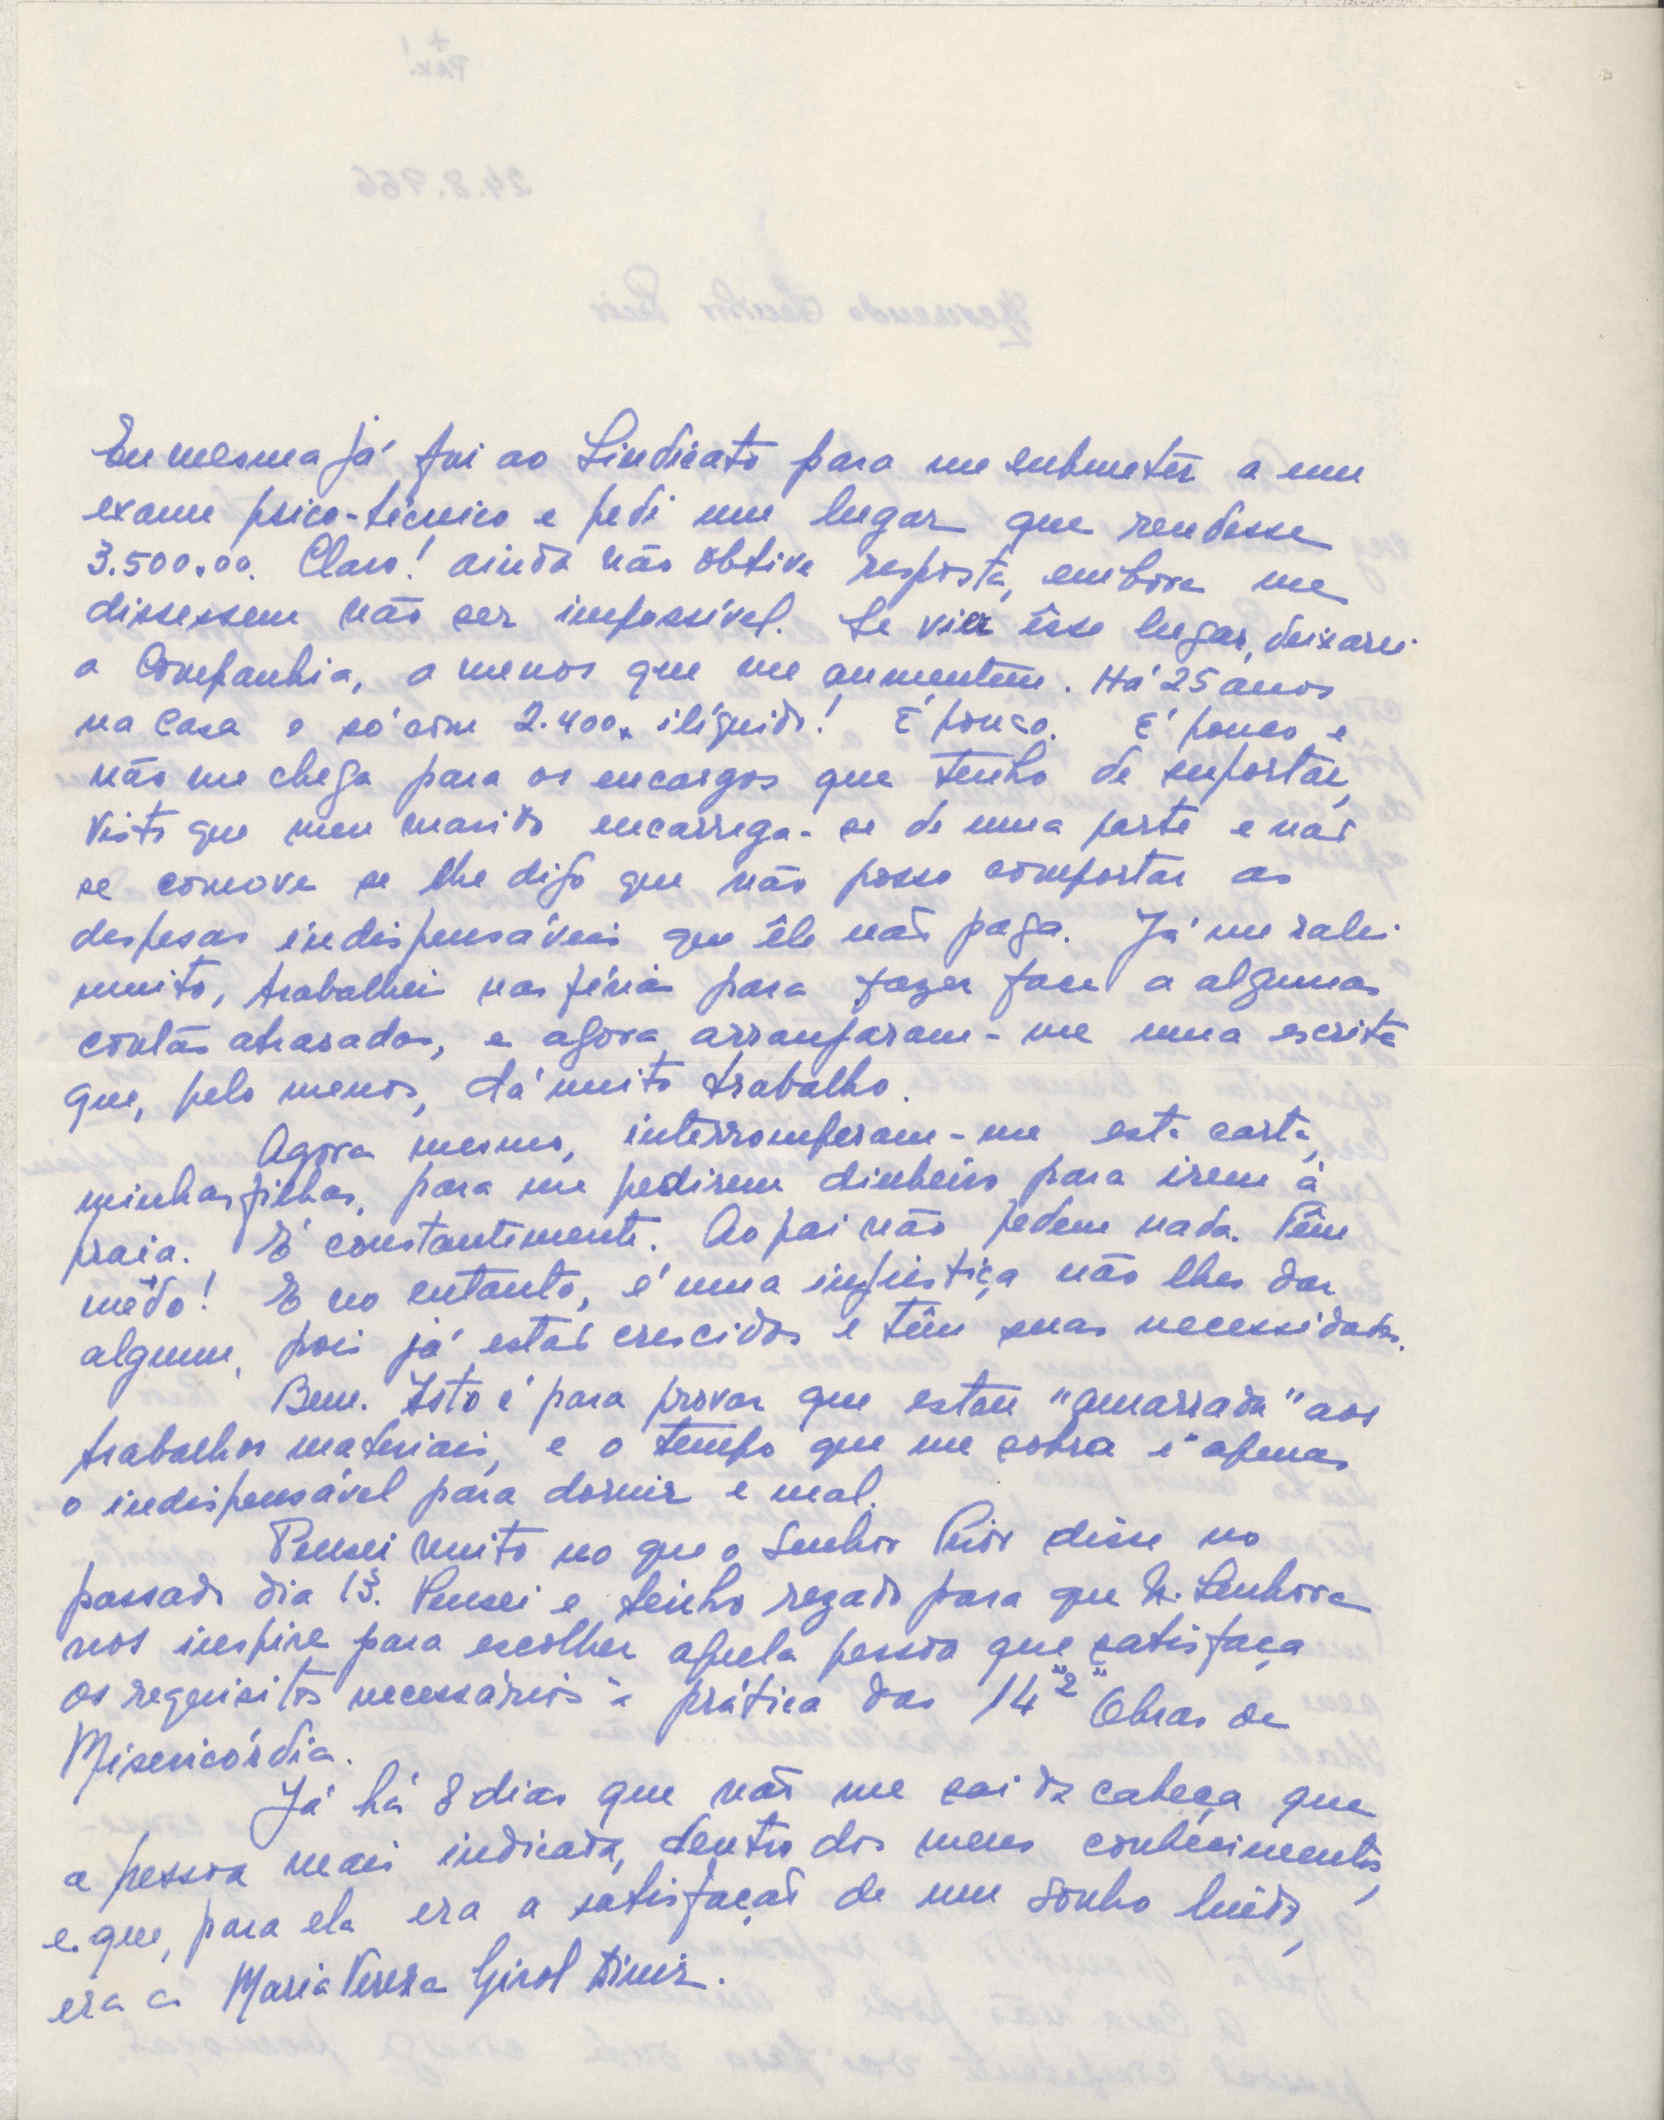 Eu mesma já fui ao Sindicato para me submeter a um
exame psico-técnico e pedi um lugar que rendesse
3.500.00. Claro! ainda não obtive resposta, embora me
dissessem não ser impossível. Se vier êsse lugar, deixarei
a Companhia, a menos que me aumentem. Há 25 anos
na Casa e só com 2.400. ilíquido! É pouco. É pouco e
não me chega para os encargos que tenho de suportar,
visto que meu marido encarrega-se de uma parte e não
se comove se lhe digo que não posso comportar as
despesas indispensáveis que êle não paga. Já me ralei
muito, trabalhei nas férias para fazer face a algumas
contas atrasadas, e agora arranjaram-me uma escrita
que, pelo menos, dá muito trabalho.
Agora mesmo, interromperam-me esta carta,
minhas filhas, para me pedirem dinheiro para irem à
praia. É constantemente. Ao pai não pedem nada. Têm
mêdo! E no entanto, é uma injustiça não lhes dar
algum, pois já estão crescidas e têm suas necessidades.
Bem. Isto é para provar que estou "amarrada" aos
trabalhos materiais, e o tempo que me sobra é apenas
o indispensável para dormir e mal.
Pensei muito no que o Senhor Prior disse no
passado dia 13. Pensei e tenho rezado para que N. Senhora
nos inspire para escolher aquela pessoa que satisfaça
os requisitos necessários à prática das 14 "2" Obras de
Misericórdia.
Já há 8 dias que não me sai da cabeça que
a pessoa mais indicada, dentro dos meus conhecimentos,
e que, para ela era a satisfação de um sonho lindo,
era a Maria Tereza Girol